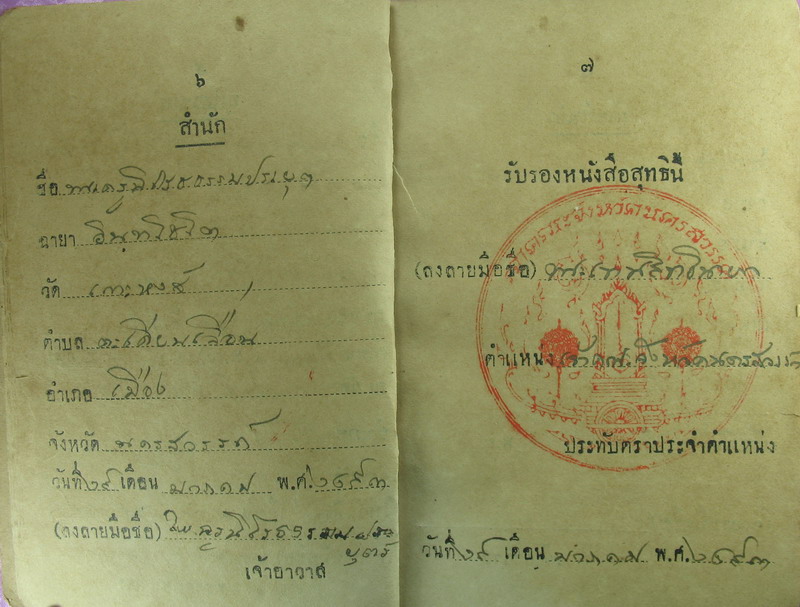 ๖
สำนัก
ชื่อ พระครูนิโรธธรรมประยุต
ฉายา อินฺทโชโต
วัด เกาะหงส์
ตำบล ตะเคียนเลื่อน
อำเภอ เมือง
จังหวัด นครสวรรค์
วันที่ ๒๙ เดือน มกราคม พ.ศ. ๒๔๙๓
(ลงลายมือชื่อ)
เจ้าอาวาส
๗
รับรองหนังสือสุทธินี้
(ลงลายมือชื่อ) พระเทพสิทธินายก
ตำแหน่ง เจ้าคณะจังหวัดนครสวรรค์
ประทับตราประจำตำแหน่ง
วันที่ ๒๙ เดือน มกราคม พ.ศ. ๒๔๙๓